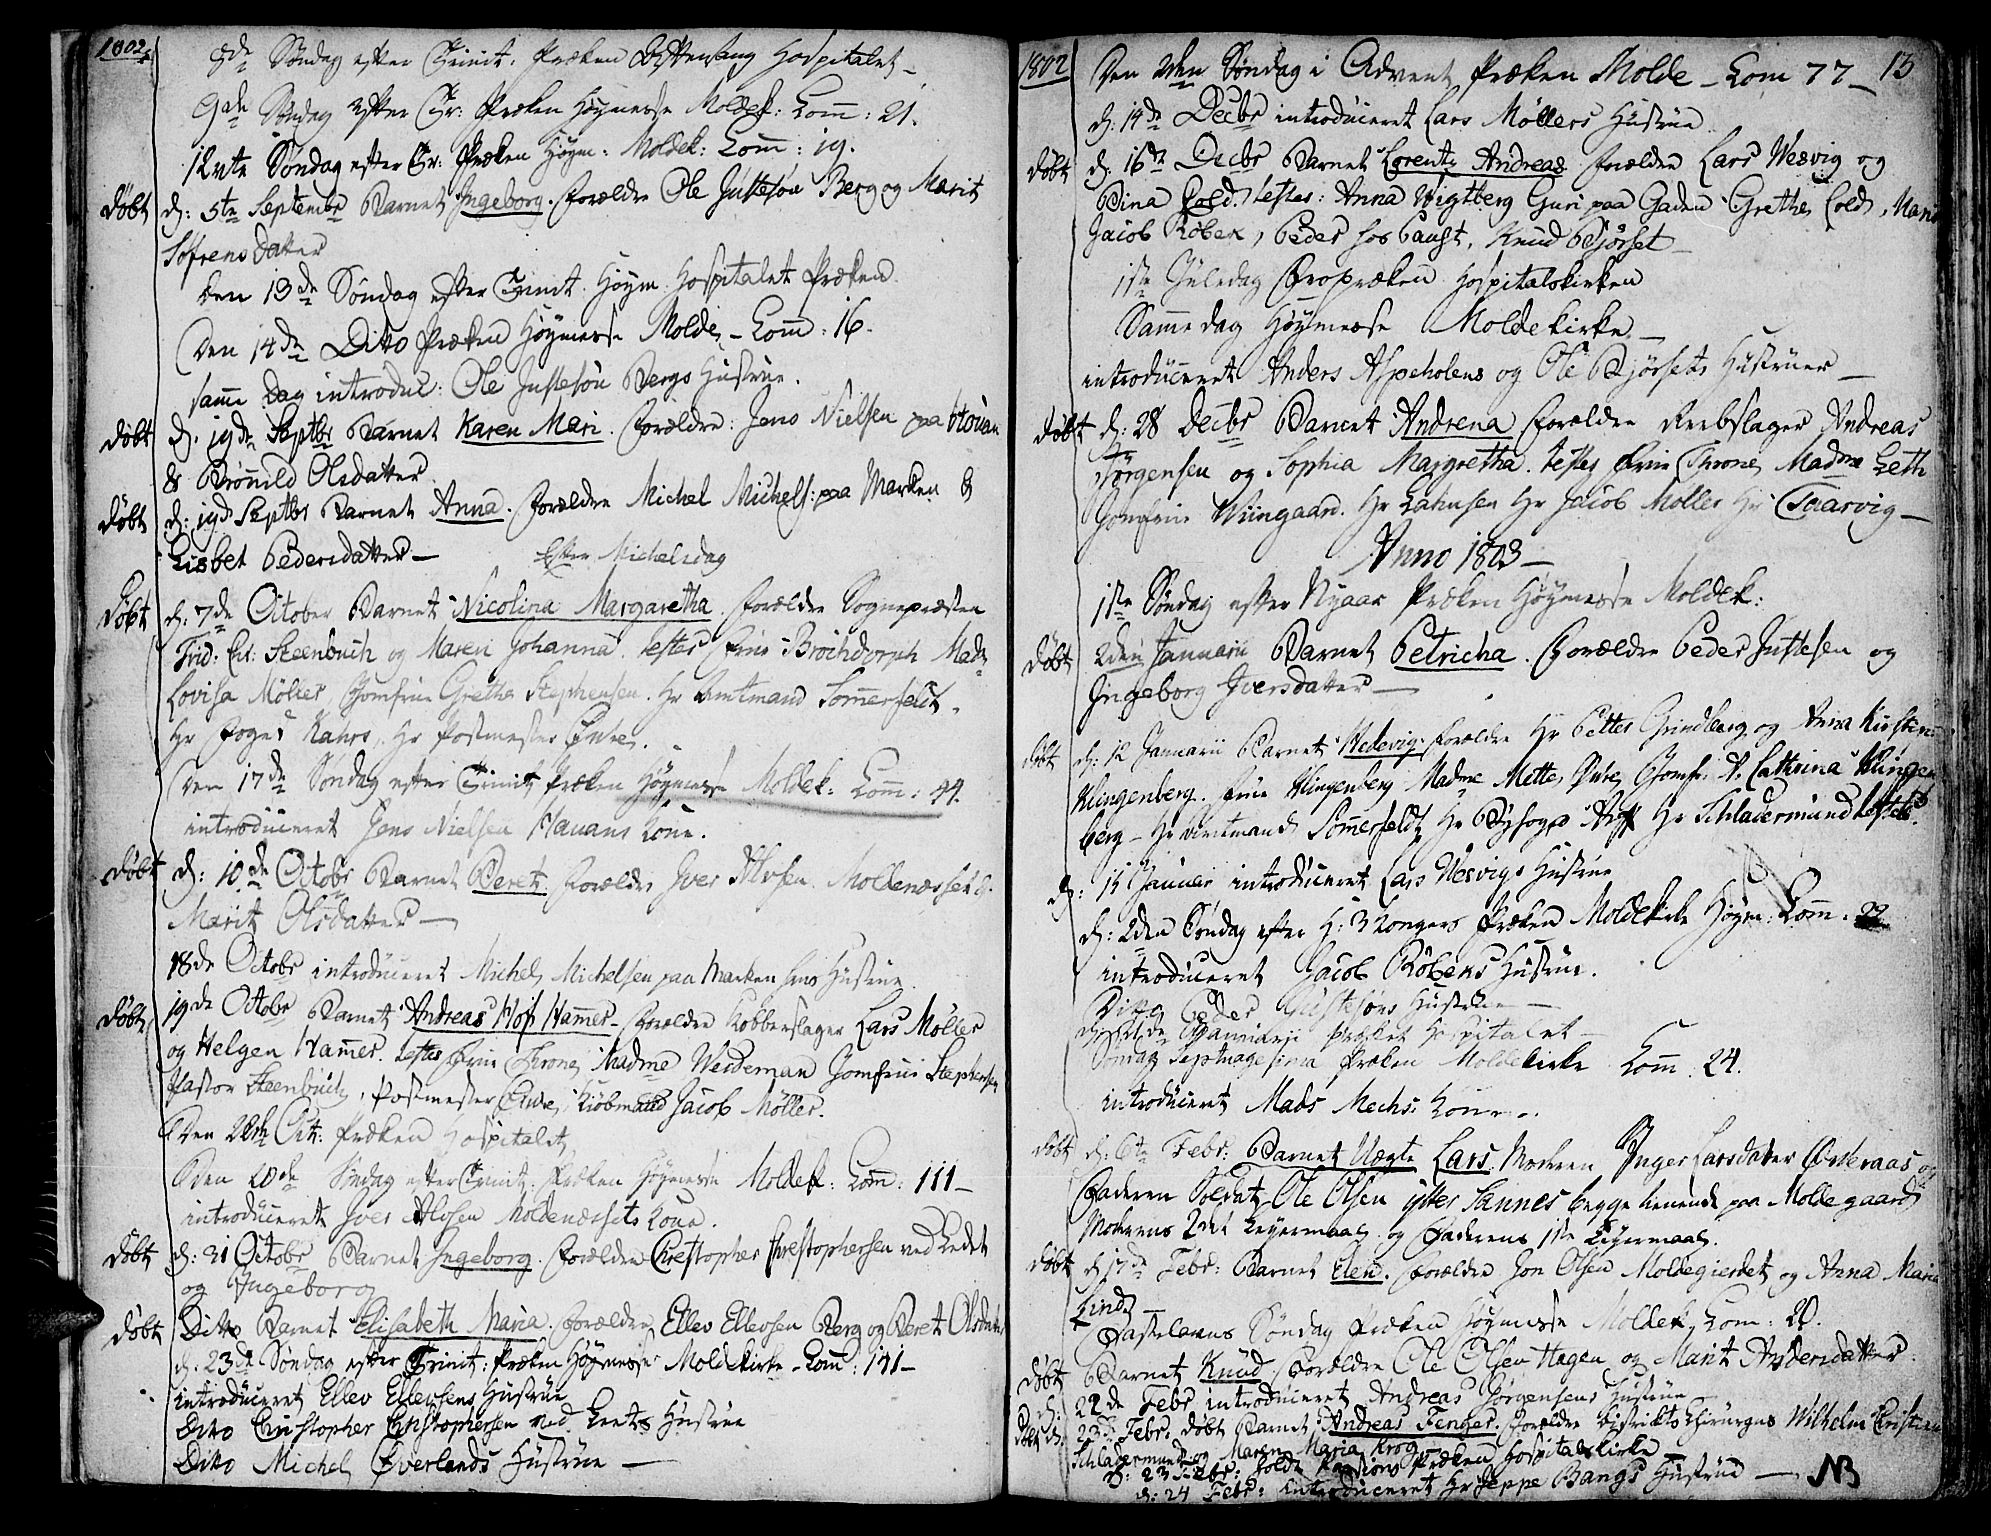 1802
8de Søndag efter Trinit: Præken Aftensang Hospitalet –
9de Søndag efter Tr: Præken Høymesse Moldek: Com: 21.
12vte Søndag efter Tr: Præken Høym: Moldek: Com: 19.
døbt d: 5te Septembr Barnet Ingeborg. Forældre Ole Justesøn Berg og Marit
Sofrensdatter
Den 13de Søndag efter Trinit. Høym Hospitalet Præken
Den 14de Dito Præken Høymesse Molde – Com: 16.
samme Dag introduc: Ole Justesøn Bergs Hustrue.
døbt d. 19de Septbr Barnet Karen Mari. Forældre: Jens Nielsen paa
& Brønild Olsdatter
døbt d: 19d Septbr Barnet Anna. Forældre Michel Michels: paa Marken &
Lisbet Pedersdatter – Efter Michelsdag
Døbt d: 7de October Barnet Nicolina Margaretha. Forældre Sognepræsten
Frid: Chr: Steenbuch og Maren Johanna. testes Frue Brochdorph Mad:
Lovisa Møller, Jomfrue Grethe Stephensen. Hr Amtmand Sommerfeldt.
Hr Foged Kahrs, Hr Postmester
Den 17de Søndag efter Trinit Præken Høymesse Moldek: Com: 44.
introduceret Jens Nielsen Hauans Kone.
døbt d: 10de Octobr Barnet Beret. Forældre Iver Alvsen Moldenæsset &
Marit Olsdatter –
18de Octobr introduceret Michel Michelsen paa Marken hans Hustrue
døbt 19de Octobr Barnet Andreas Hof Hammer – Forældre Kobberslager Lars Møller
og Helgen Hammer. testes Frue Throne, Madme Weideman Jomfrue Stephensen
Pastor Steenbuch, Postmester Kiøbmand Jacob Møller.
Den Oct: Præken Hospitalet
Den 20de Søndag efter Trinit: Præken Høymesse Moldek: Com: 111 –
introduceret Iver Alvsen Moldenæssets Kone.
døbt d: 31 Octobr Barnet Ingeborg. Forældre Christopher Christophersen ved Ledet
og Ingeborg
døbt Ditto Barnet Elisabeth Maria. Forældre Ellev Ellevsen Berg og Beret Olsdatter
d. 23de Søndag efter Trinit: Præken Høymesse Moldekirke – Com: 141 –
introduceret Ellev Ellevsens Hustrue
Dito Christopher Christophersen ved Leets Hustrue
Dito Michel Øverlands Hustrue –
1802 Den 2den Søndag i Advent Præken Molde – Com 77 – 13
d: 14de Decbr introduceret Lars Møllers Hustrue
døbt d. 16de Decbr Barnet Lorentz Andreas Forældre Lars Wesvig og
Bina Cold. testes: Anna Wigtberg Guri paa Gaden Grethe Cold, Mari
Jacob Røbek, Peder hos Paust, Knud Biørset –
1ste Juledag Froprækken Hospitalskirken
Samme dag Høymesse Moldekirke. –
introduceret Anders Aspeholens og Ole Biørsets Hustruer –
døbt d: 28 Decbr Barnet Andrena Forældre Reebslager Andreas
Jørgensen og Sophia Margretha. testes Frue Throne, Madme Leth
Jomfrue Wiingaard. Hr Lahnsen Hr Jacob Møller Hr Taarvig –
Anno 1803 –
1ste Søndag efter Nyaar Præken Høymesse Moldek:
døbt 2den Januarii Barnet Petricha. Forældre Peder Justesen og
Ingeborg Iversdatter –
døbt d: 12 Januarii Barnet Hedevig. Forældre Hr Petter Grindberg og Anna Kirstena
Klingenberg. Frue Klingenberg Madme Mette Jomfr: A. Cathrina Klingen
berg – Hr Amtmand Sommerfeldt Hr Byfoged Hr Schladermund testes.
d: 15 Januar introduceret Lars Wesvigs Hustrue
d: 2den Søndag efter H: 3 Kongers Præken Moldekirke Høym: Com: 22
introduceret Jacob Røbeks Hustrue.
Ditto Peder Justesøns Hustrue –
Januarii Præket Hospitalet –
Søndag Septuagesima Præken Moldekirke Com 24.
introduceret Mads Mechs: Kone.
døbt d: 6te Febr: Barnet Uægte Lars. Moderen Inger Larsdatter Østeraas og
Faderen Soldat Ole Olsen Sannes begge tienende paa Moldegaard
Moderens 2det Leyermaal og Faderens 1ste Leyermaal.
døbt d 17de Febr: Barnet Elen. Forældre Jon Olsen Moldegierdet og Anna Maria
Lind –
Fastelavns Søndag Præken Høymesse Moldek, Com: 20.
døbt Barnet Knud Forældre Ole Olsen Hagen og Marit Andersdatter
d: 22de Febr introduceret Andreas Jørgensens Hustrue –
Døbt d: 23de Febr. døbt Barnet Andreas Fenger. Forældre Districts Chirurgus Wilhelm Christian
Schladermund og Maren Maria Krog –
d: 23 Febr: holdt Passions Præken Hospitalskirke –
d: 24 Febr: introduceret Hr Jeppe Bangs Hustrue – NB